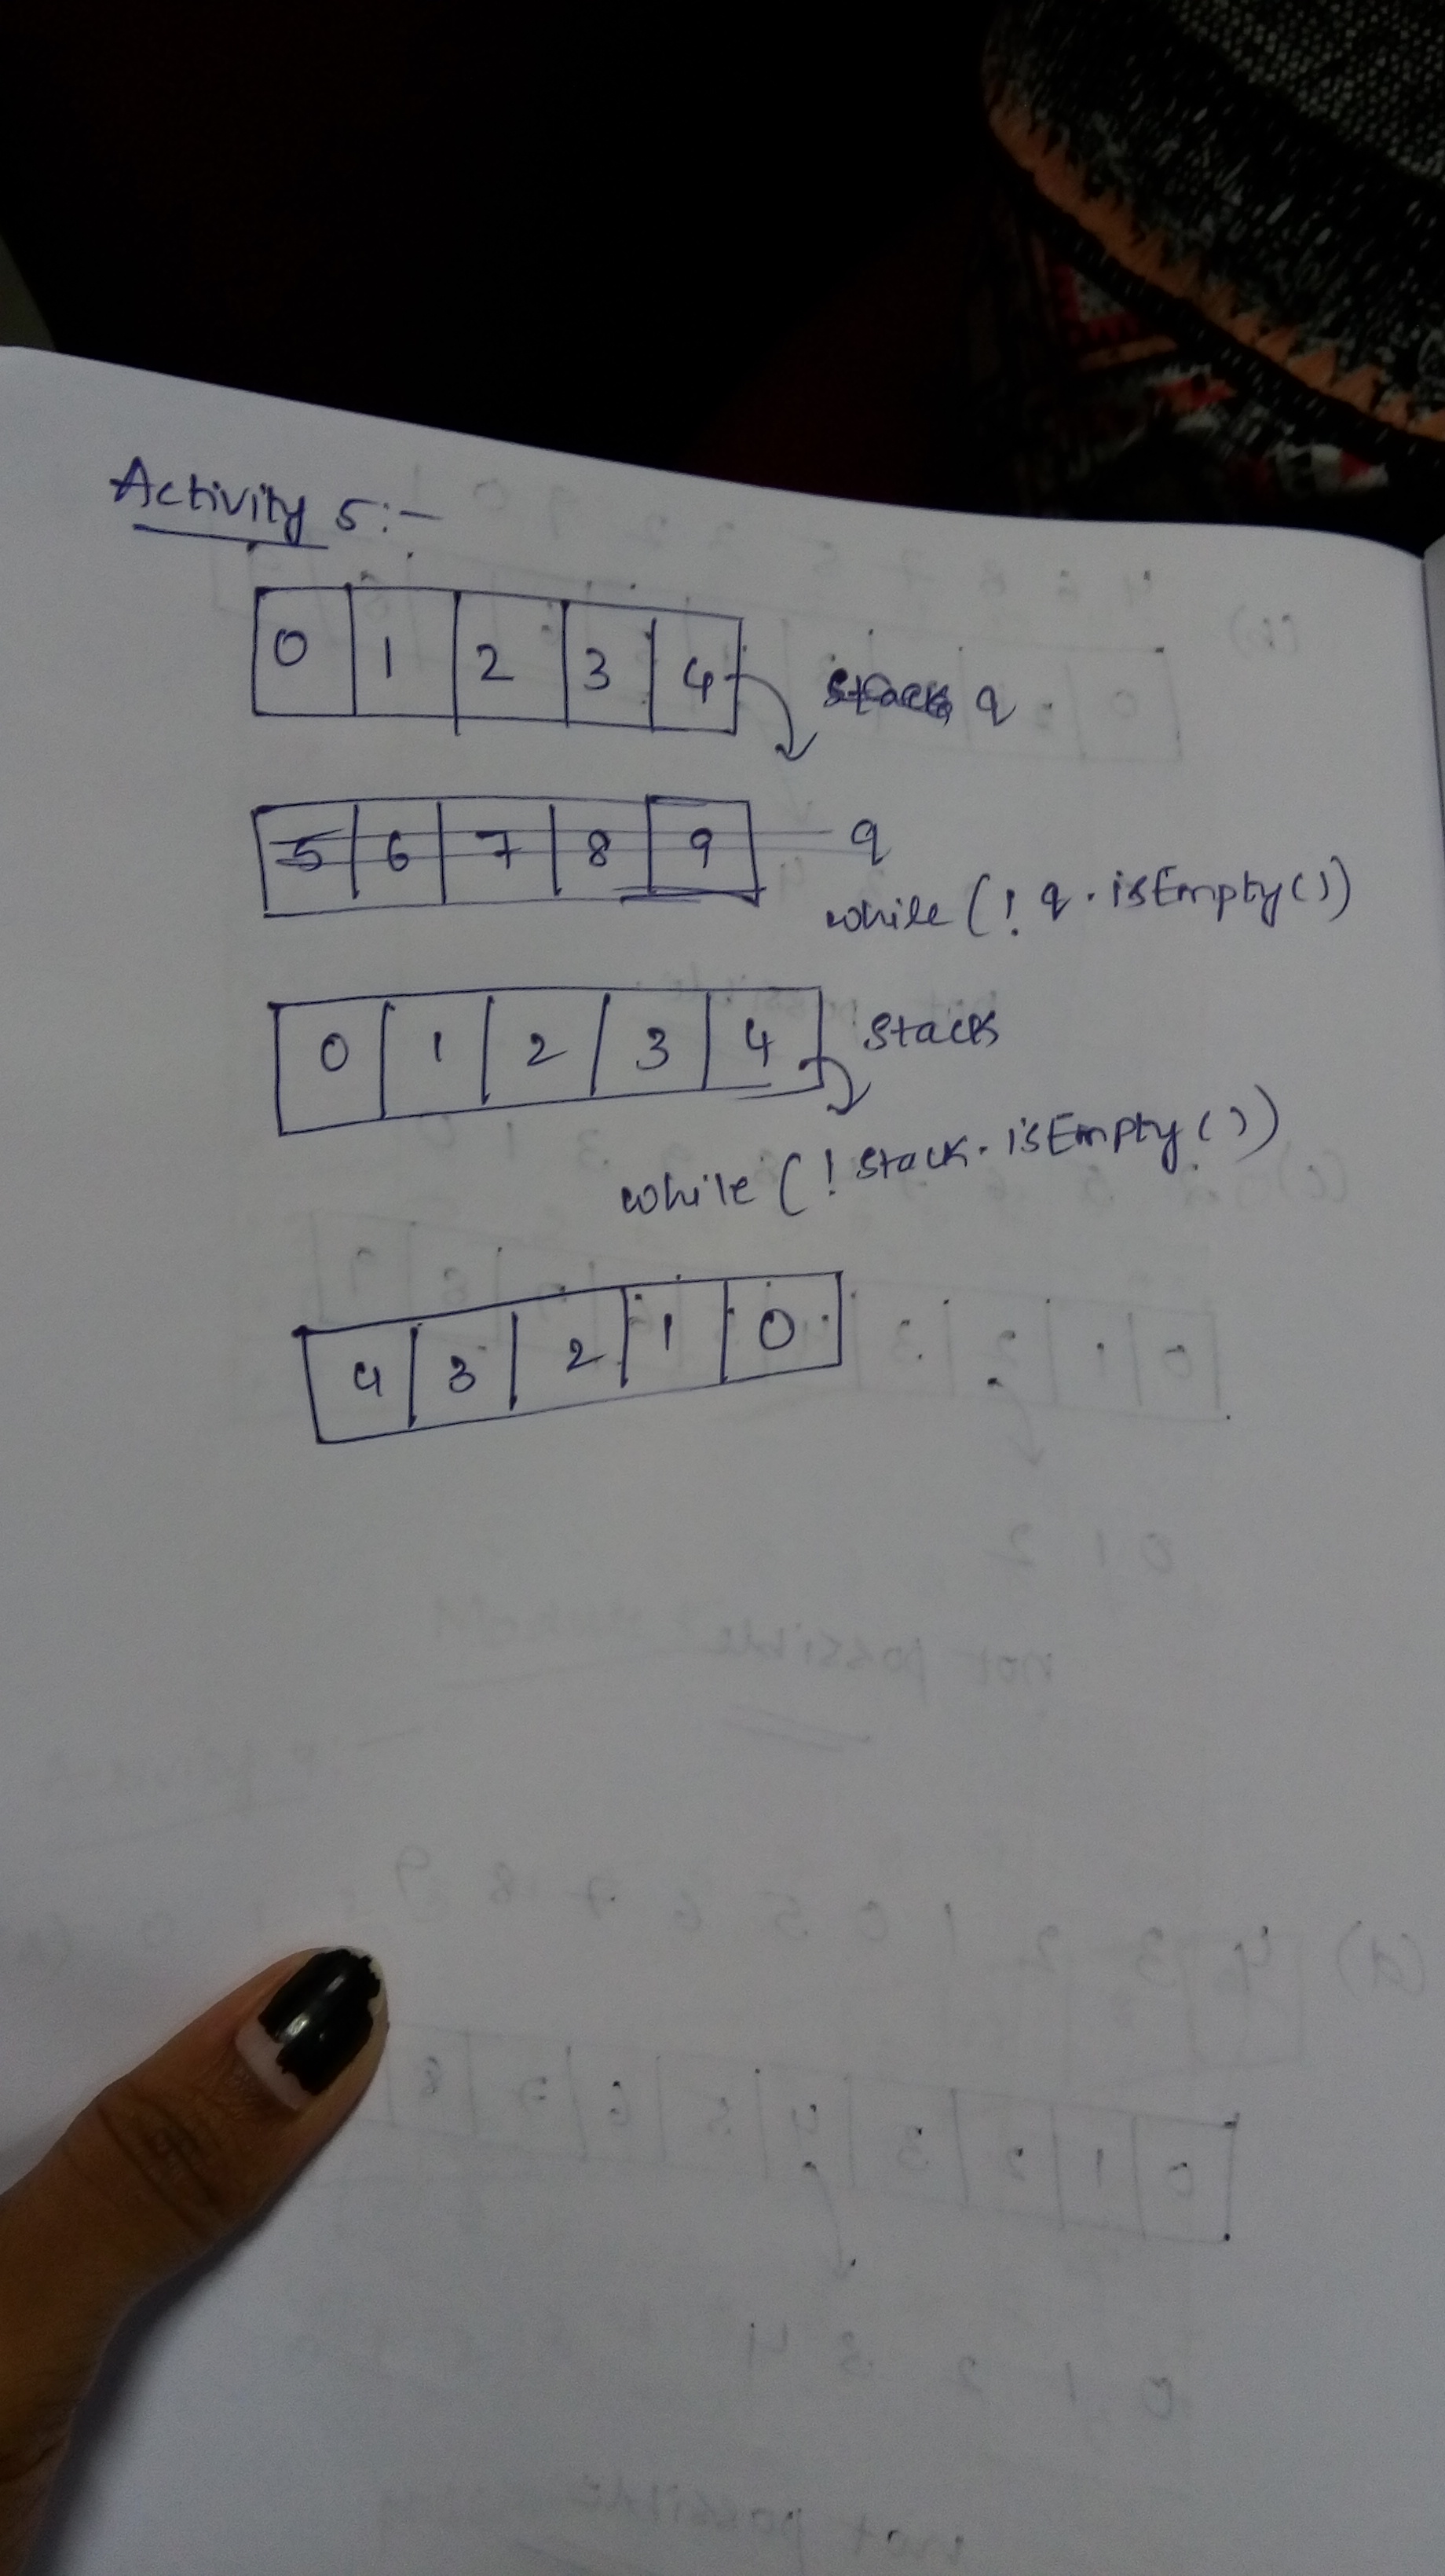 Activity 5:-
0 1 2 3 4 q
5 6 7 8 9 q
while (! q. isEmpty())
0 1 2 3 4 stack
while (! stack. isEmpty())
4 3 2 1 0